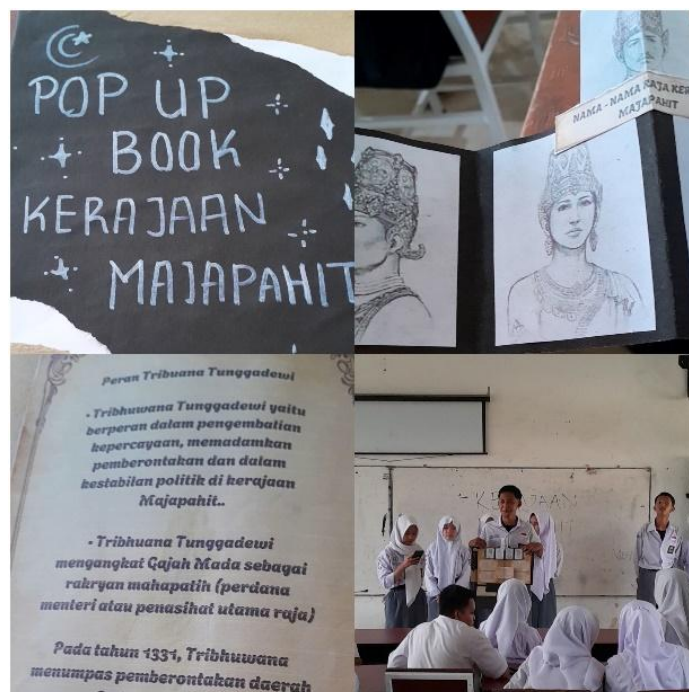 POP UP
BOOK
KERAJAAN
MAJAPAHIT
NAMA - NAMA RAJA KER
MAJAPAHIT
Peran Tribuana Tunggadewi
• Tribhuwana Tunggadewi yaitu
berperan dalam pengembalian
kepercayaan, memadamkan
pemberontakan dan dalam
kestabilan politik di kerajaan
Majapahit..
• Tribhuana Tunggadewi
mengangkat Gajah Mada sebagai
rakryan mahapatih (perdana
menteri atau penasihat utama raja)
Pada tahun 1331, Tribhuwana
menumpas pemberontakan daerah
KERAJAAN